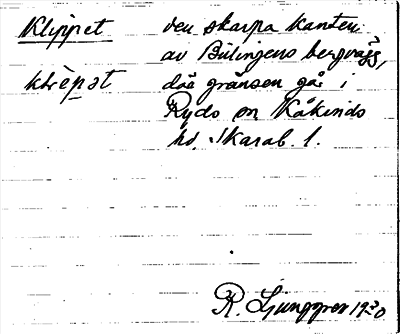 Klippet den skarpa kanten
av Billingens bergvägg,
klèpət där gränsen går i
Ryds sn Kåkinds
hd. Skarab. l.
R. Ljunggren 1930